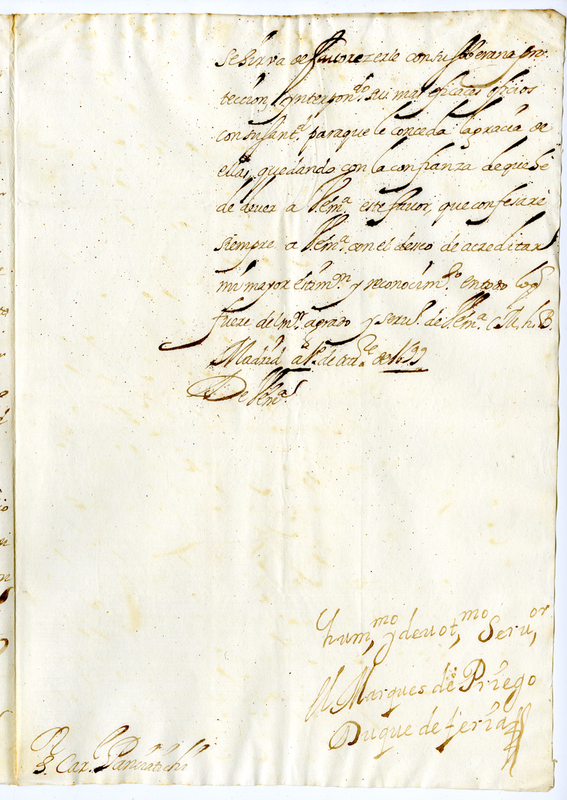 se sirva de favorezerle con su soberana pro-
teccion, y interpon.do sus mas eficaces oficios
con su San.d para que le conceda la gracia de
ellas, quedando con la confianza de que he
de dever a V.Em.a este favor, que confesaré
siempre a V.Em.a con el deseo de acreditar
mi mayor estim.n y reconocim.to en todo lo q
fuere del m.r agrado y serv.o de V.Em.a C. M. h. B.
Madrid a de 1699
De V.Em.a
hum.mo y devot.mo Serv.or
El Marques de Priego
Duque de feria
S. Car. Panciatichi